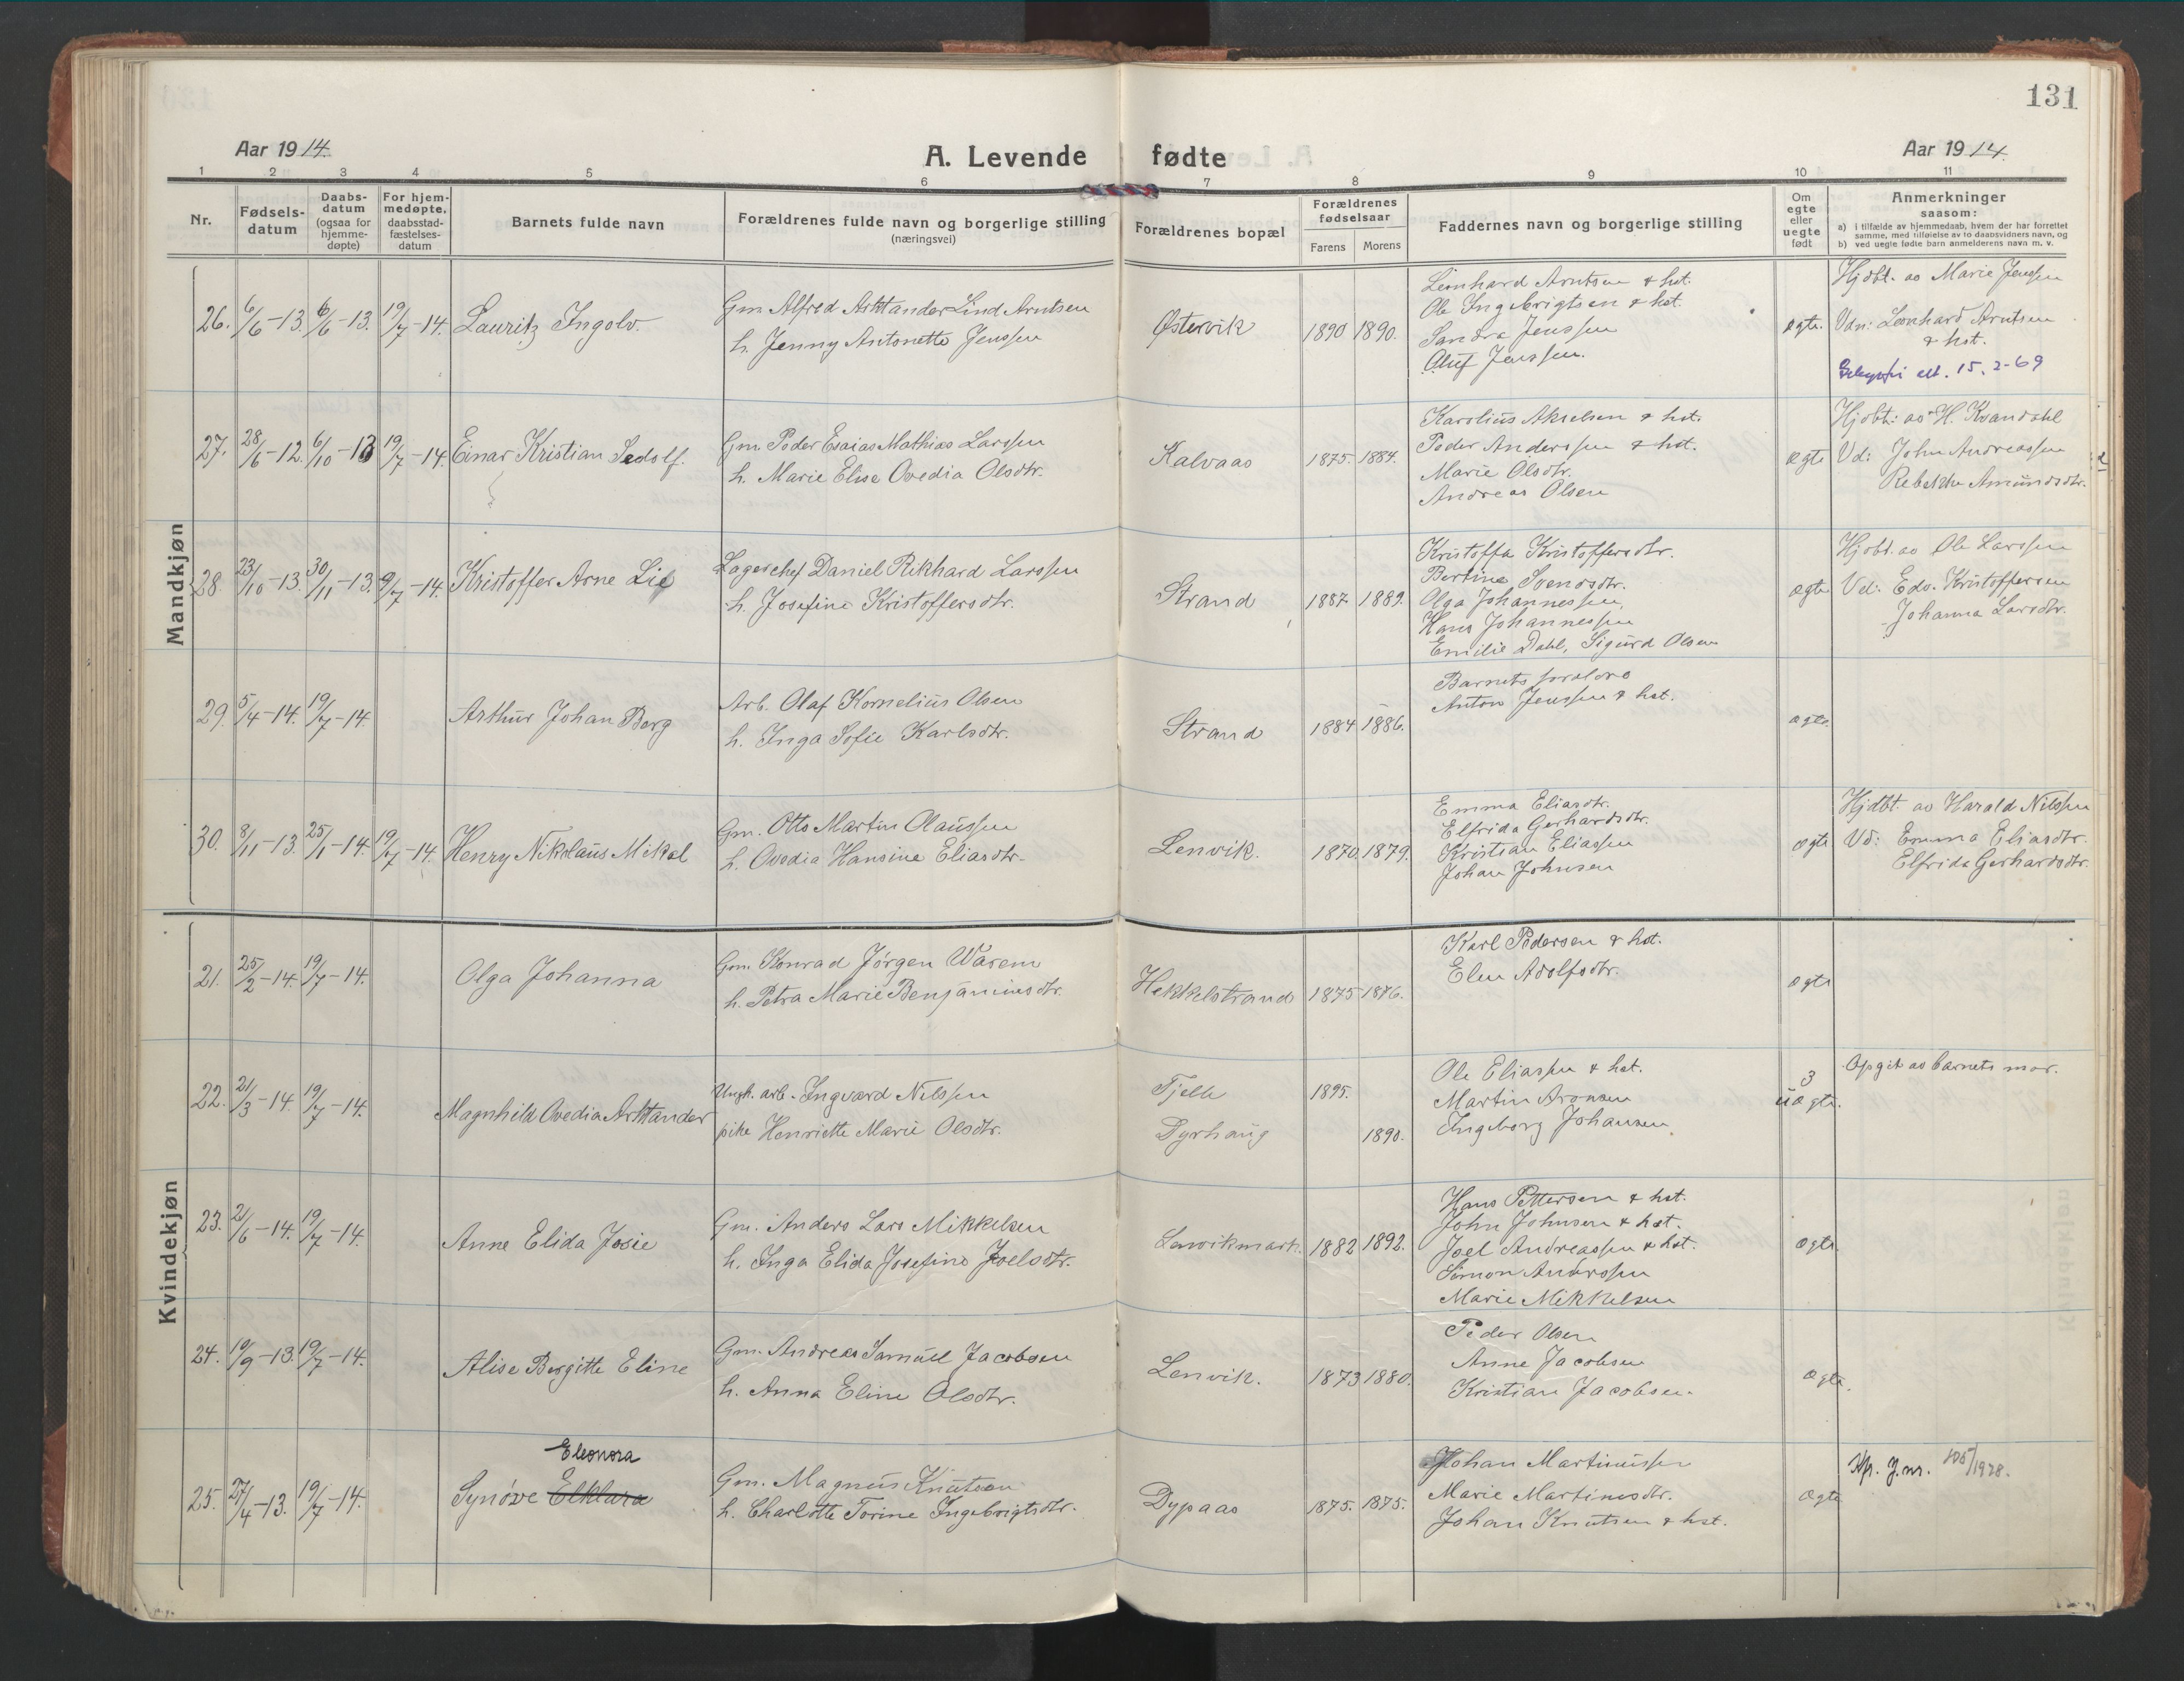 131
Aar 1914.
A. Levende fødte
Aar 1914.
1 2 3 4 5 6 7 8 9 10 11
Nr.
Fødsels-
datum
Daabs-
datum
(ogsaa for
hjemme-
døpte)
For hjem-
medøpte.
daabsstad-
fæstelses-
datum
Barnets fulde navn
Forældrenes fulde navn og borgerlige stilling
(næringsvei)
Forældrenes bopæl
Forældrenes
fødselsaar
Farens
Morens
Faddernes navn og borgerlige stilling
Om
egte
eller
uegte
født
Anmerkninger
saasom:
a) i tilfælde av hjemmedaab, hvem der har forrettet
samme, med tilføielse av to daabsvidners navn, og
b) ved uegte fødte barn anmelderens navn m. v.
Mandkjøn
26. 6/6-13. 6/6-13. 19/7-14. Lauritz Ingolv.
Gm. Alfred Arktander Lind Arntsen
h. Jenny Antonette Jenssen
Østervik 1890 1890.
Leonhard Arntsen & hst.
Ole Ingebrigtsen & hst.
Sandra Jenssen
Oluf Jenssen.
ægte.
Hjdbt. av Marie Jenssen
Vdn: Leonhard Arntsen
& hst.
att. 15.2-69
27. 28/6-12. 6/10-13 19/7-14. Einar Kristian Sedolf.
Gm. Peder Esaias Mathias Larssen
h. Marie Elise Ovedia Olsdtr.
Kalvaas 1875. 1884.
Karolius Akselsen & hst.
Peder Anderssen & hst.
Marie Olsdtr.
Andreas Olsen
ægte
Hjdbt: av H. Kvandahl
Vd: John Andreassen
Rebekka Amundsdtr.
28. 23/10-13. 30/11-13. 9/7-14. Kristoffer Arne Lie
Lagerchef Daniel Rikhard Larssen
h. Josefine Kristoffersdtr.
Strand 1887 1889.
Kristoffa Kristoffersdtr.
Bertine Svendsdtr.
Olga Johannessen,
Hans Johannessen
Emilie Dahl, Sigurd Olsen
ægte
Hjdbt. av Ole Larssen
Vd: Edv. Kristoffersen
Johanna Larsdtr.
29. 5/4-14. 19/7-14. Arthur Johan Berg
Arb. Olaf Kornelius Olsen
h. Inga Sofie Karlsdtr.
Strand 1884 1886.
Barnets forældre
Anton Jenssen & hst.
ægte.
30. 8/11-13. 25/1-14. 19/7-14. Henry Nikolaus Mikal
Gm. Otto Martin Olaussen
h. Ovedia Hansine Eliasdtr.
Lenvik. 1870. 1879.
Emma Eliasdtr.
Elfrida Gerhardsdtr.
Kristian Eliassen
Johan Johnsen
ægte
Hjdbt. av Harald Nilssen
Vd: Emma Eliasdtr.
Elfrida Gerhardsdtr.
Kvindekjøn
21. 25/2-14. 19/7-14. Olga Johanna
Gm. Konrad Jørgen Wasem
h. Petra Marie Benjaminsdtr.
Hekkelstrand 1875 1876.
Karl Pedersen & hst.
Elen Adolfsdtr.
ægte
22. 21/3-14. 19/7-14. Magnhild Ovedia Arktander
Ungk. arb. Ingvard Nilssen
pike Henriette Marie Olsdtr.
Tjelle 1895.
Dyrhaug 1890.
Ole Eliassen & hst.
Martin Aronsen
Ingeborg Johansen.
3
uægte.
Opgit av barnets mor.
23. 21/6-14. 19/7-14. Anne Elida Josie
Gm. Anders Lars Mikkelsen
h. Inga Elida Josefine Joelsdtr.
Lenvikmark. 1882 1892.
Hans Pettersen & hst.
John Johnsen & hst.
Joel Andreassen & hst.
Simon Anderssen
Marie Mikkelsen
ægte.
24. 19/9-13. 19/7-14. Alise Bergitte Eline
Gm. Andreas Samuel Jacobsen
h. Anna Eline Olsdtr.
Lenvik. 1873 1880.
Peder Olsen
Anne Jacobsen
Kristian Jacobsen.
ægte.
Eleonora
25. 27/4-13. 19/7-14. Synøve Elklara
Gm. Magnus Knutsen
h. Charlotte Torine Ingebrigtsdtr.
Dypaas 1875. 1875.
Johan Martinussen
Marie Martinusdtr.
Johan Knutsen & hst.
ægte
Kp. J.nr. 105/1928.